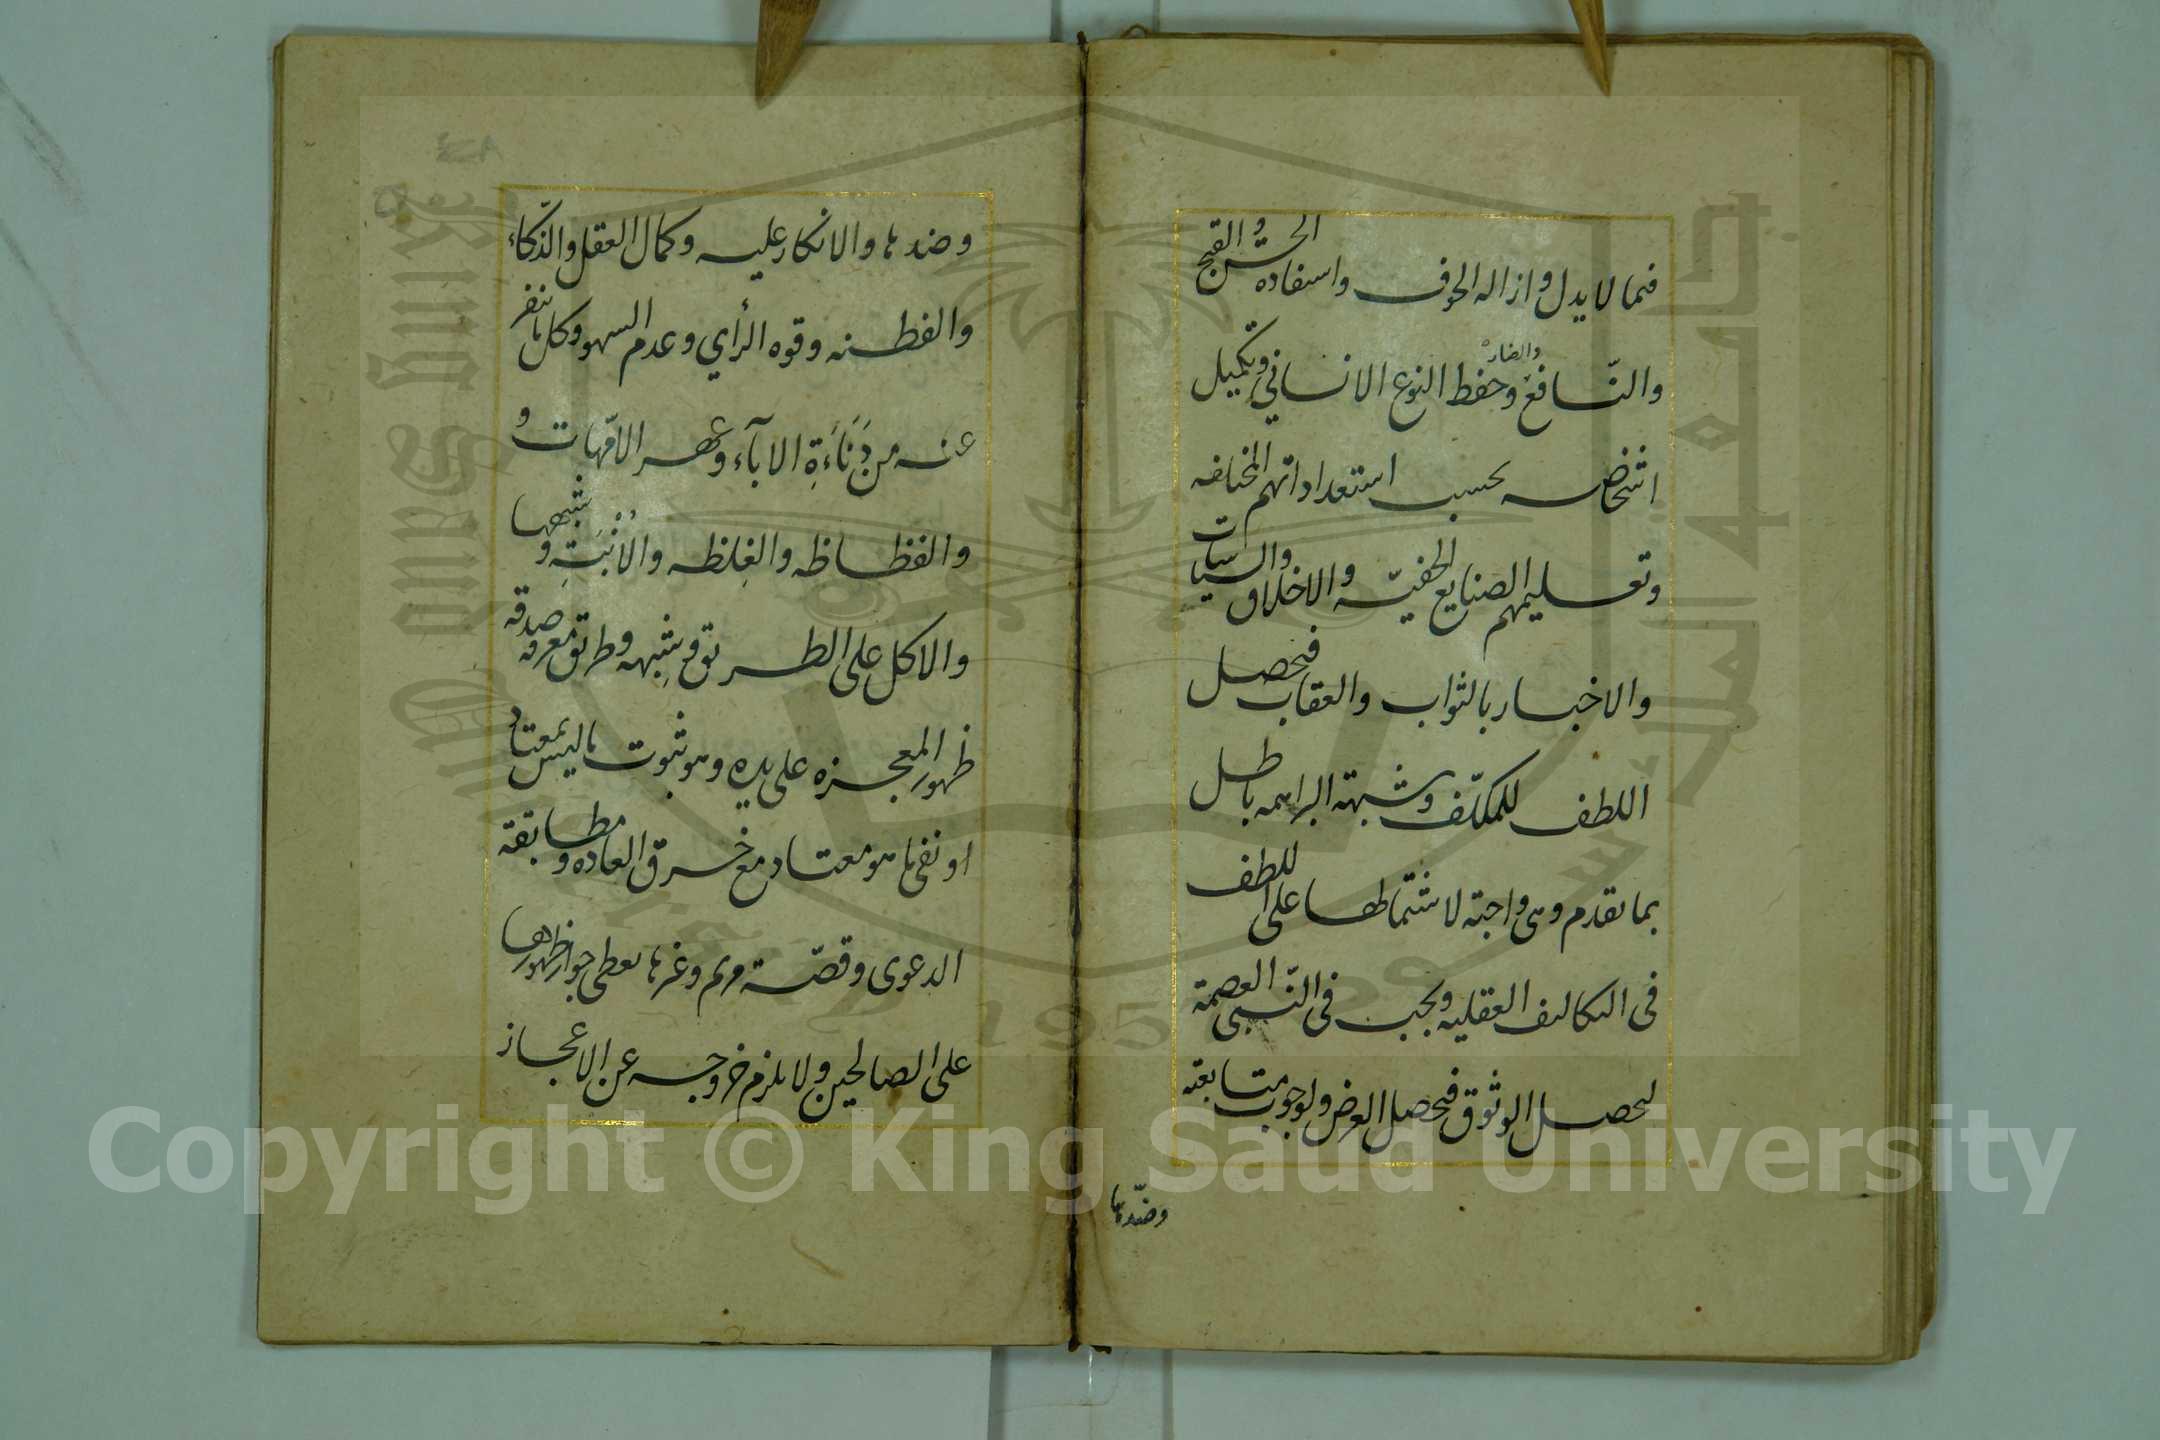 فيما لا يدل وازاله الخوف واستفاده الحسن والقبح
والنّافع والضار وحفظ النوع الانساني وتكميل
اشخاصه بحسب استعداداتهم المختلفه
وتعليمهم الصنايع الخفيّه والاخلاق والسياسات
والاخبار بالثواب والعقاب فيحصل
اللطف للمكلّف وشبهة البراهمه باطل
بما تقدم وهى واجبة لاشتمالها على اللطف
فى التكاليف العقليه ويجب فى النّبى العصمة
ليحصل الوثوق فيحصل الغرض ولوجوب متابعته
وضدّها
وضدها والانكار عليه وكمال العقل والذكاء
والفطنه وقوه الرأي وعدم السهو وكل ما ينفر
عنه من دَنَاءَةِ الاباء وعهر الامّهات و
والفظاظه والغِلظه والأُبْنَةِ وشبهها
والاكل على الطريق وشبهه وطريق معرفه صدقه
ظهور المعجزه على يده وهو ثبوت ما ليس بمعتاد
او نفى ما هو معتاد مع خرق العاده ومطابقة
الدعوى وقصّة مريم وغيرها يعطى جواز ظهورها
على الصالحين ولا يلزم خروجه عن الاعجاز
Copyright © King Saud University
King Saud University
جامعة الملك سعود
1957